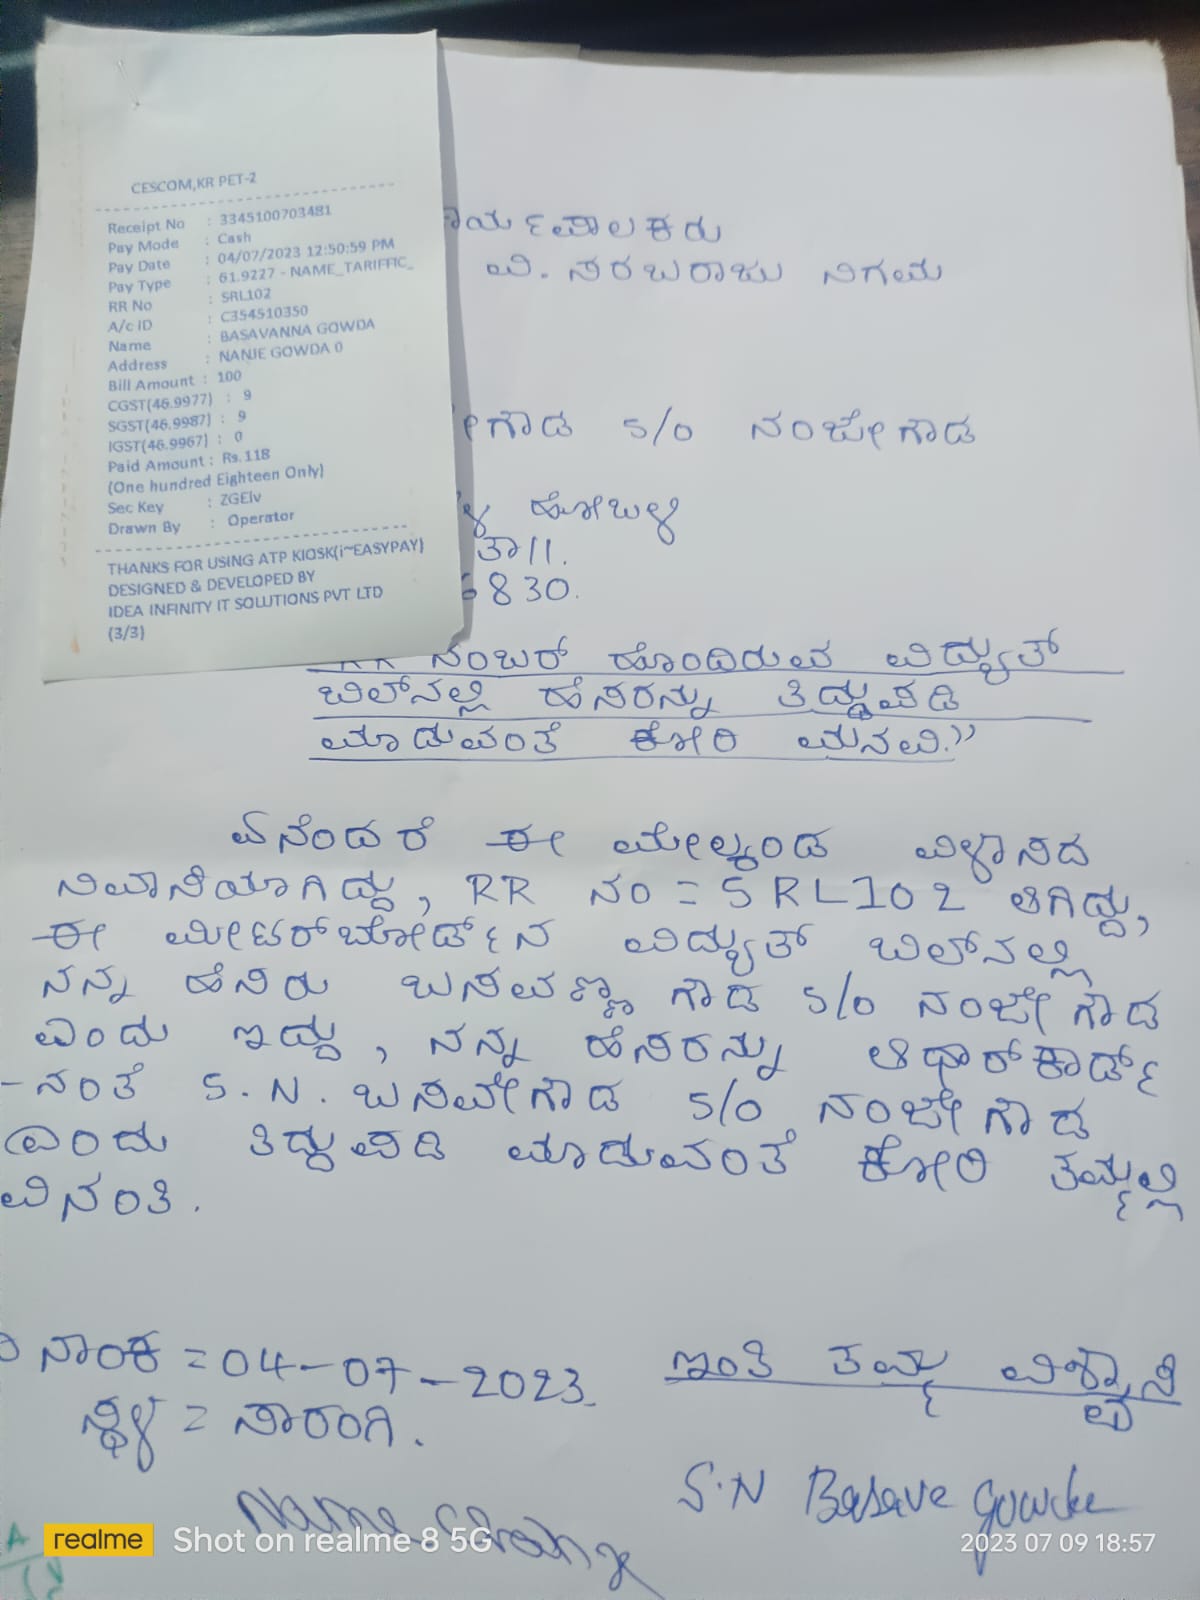 CESCOM,KR PET-2
Receipt No : 3345100703481
Pay Mode : Cash
Pay Date : 04/07/2023 12:50:59 PM
Pay Type : 61.9227 - NAME_TARIFFIC_
RR No : SRL102
A/c ID : C354510350
Name : BASAVANNA GOWDA
Address : NANJE GOWDA 0
Bill Amount : 100
CGST(46.9977) : 9
SGST(46.9987) : 9
IGST(46.9967) : 0
Paid Amount : Rs.118
(One hundred Eighteen Only)
Sec Key : ZGElv
Drawn By : Operator
THANKS FOR USING ATP KIOSK(i~EASYPAY)
DESIGNED & DEVELOPED BY
IDEA INFINITY IT SOLUTIONS PVT LTD
(3/3)
ರ್ಯಪಾಲಕರು
ವಿ. ಸರಬರಾಜು ನಿಗಮ
ಗೌಡ S/O ನಂಜೇಗೌಡ
ಹೋಬಳಿ
ತಾ||.
6830.
RR ನಂಬರ್ ಹೊಂದಿರುವ ವಿದ್ಯುತ್
ಬಿಲ್‌ನಲ್ಲಿ ಹೆಸರನ್ನು ತಿದ್ದುಪಡಿ
ಮಾಡುವಂತೆ ಕೋರಿ ಮನವಿ.”
ಏನೆಂದರೆ ಈ ಮೇಲ್ಕಂಡ ವಿಳಾಸದ
ನಿವಾಸಿಯಾಗಿದ್ದು, RR ನಂ = SRL102 ಆಗಿದ್ದು,
ಈ ಮೀಟರ್‌ಬೋರ್ಡ್‌ನ ವಿದ್ಯುತ್ ಬಿಲ್‌ನಲ್ಲಿ
ನನ್ನ ಹೆಸರು ಬಸವಣ್ಣಗೌಡ S/O ನಂಜೇಗೌಡ
ಎಂದು ಇದ್ದು, ನನ್ನ ಹೆಸರನ್ನು ಆಧಾರ್‌ಕಾರ್ಡ್
-ನಂತೆ S.N. ಬಸವೇಗೌಡ S/O ನಂಜೇಗೌಡ
ಎಂದು ತಿದ್ದುಪಡಿ ಮಾಡುವಂತೆ ಕೋರಿ ತಮ್ಮಲ್ಲಿ
ವಿನಂತಿ.
ನಾಂಕ = 04-07-2023.
ಇಂತಿ ತಮ್ಮ ವಿಶ್ವಾಸಿ
ಸ್ಥಳ = ಸಾರಂಗಿ.
S.N Basave Gowda
Name
realme Shot on realme 8 5G
2023 07 09 18:57